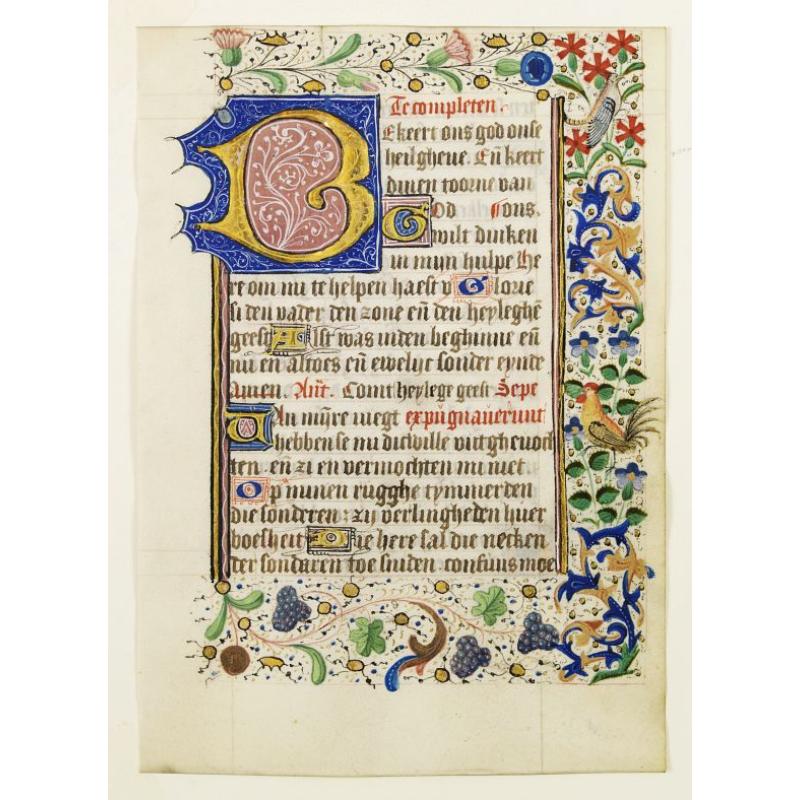 Te completen.
Bekeert ons god onse
heilgheue. En̄ keert
dinen toorne van
God ons.
wilt dinken
in mijn hulpe he
re om mi te helpen haest v Glorie
si den vader den zone en̄ den heylighē
geest Alst was inden beghinne en̄
nu en altoes en̄ ewelijc sonder eynde
Amen. Ant̄. Comt heylege geest Sepe
Van mijre iuegt expūgnauerunt
hebben se mi dicwille vitgheuoch
ten. en̄ zi en vermochten mi niet
Op minen rugghe tymmerden
die sonderen: zy verlingheden huer
boesheit Die here sal die necken
der sondaren toe sniden. confuus moe